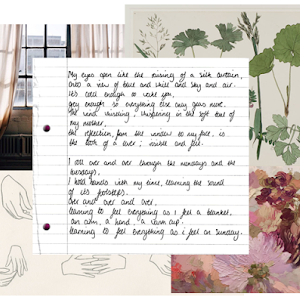 My eyes open like the raising of a silk curtain,
onto a view of blue and and sky and air.
it's cold enough to wake you,
grey enough so everything else only gains more.
The wind whistling, whispering in the soft tone of
my mother,
the reflection from the window to my face, is
the look of a lover; visible and felt.
I roll over and over through the mondays and the
tuesdays,
I hold hands with my time, learning the sound
of its footsteps.
over and over and over,
learning to feel everything as I feel a blanket,
an arm, a hand, a warm cup.
learning to feel everything as I feel on Sunday.